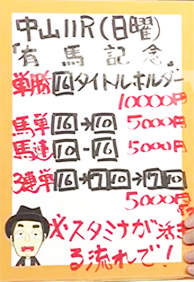 中山11R(日曜)
「有馬記念」
単勝 16 タイトルホルダー
10000円
馬単 16→10 5000円
馬連 10-16 5000円
3連単 16→7 10→7 10
5000円
※スタミナが活き
る流れで!